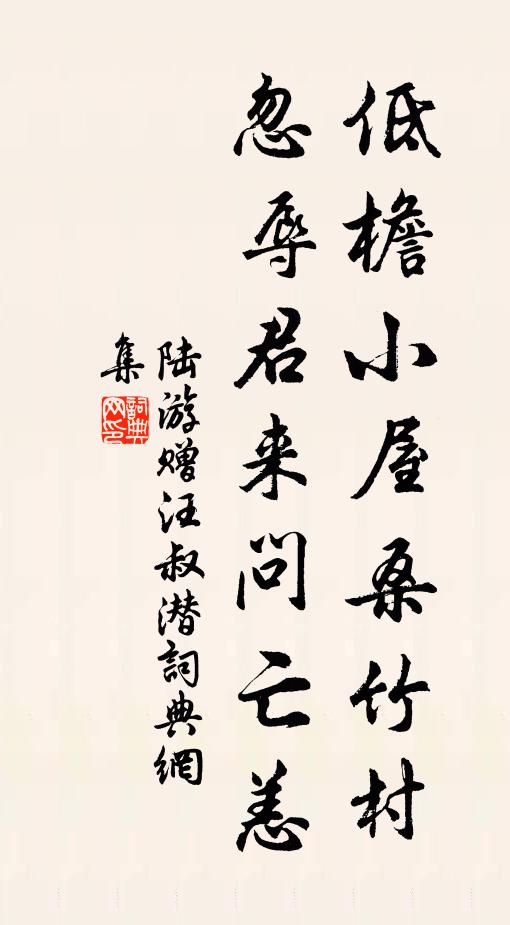 低檐小屋桑竹村
忽辱君来问亡恙
陆游赠汪叔潜詞典網
集
詞典网印